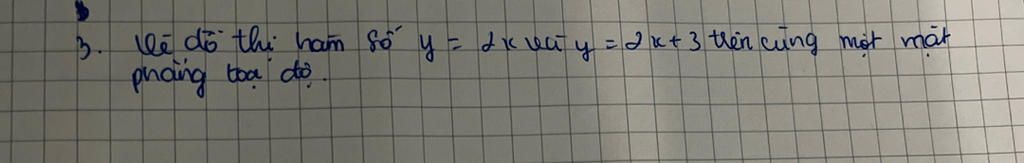 3. Vẽ đồ thị hàm số y = 2x và y = 2x + 3 trên cùng một mặt
phẳng toạ độ.